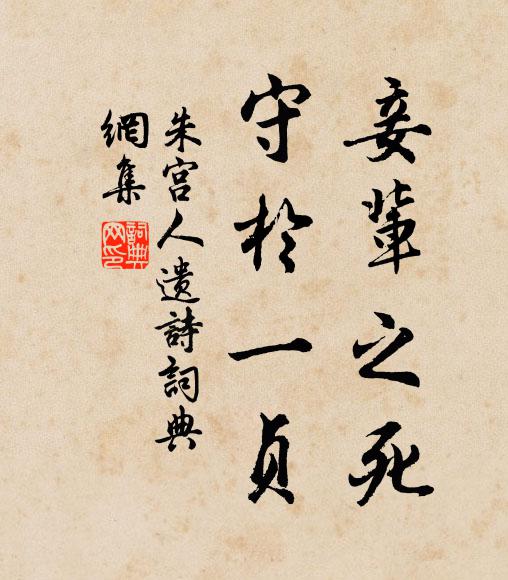 妾輩之死
守於一貞
朱宫人遺詩詞典
網集
詞典
网印